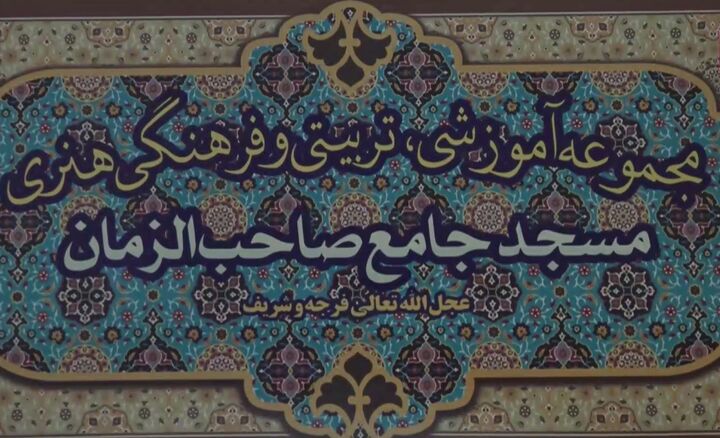 مجموعه آموزشی، تربیتی و فرهنگی هنری
مسجد جامع صاحب الزمان
عجل الله تعالی فرجه و شریف